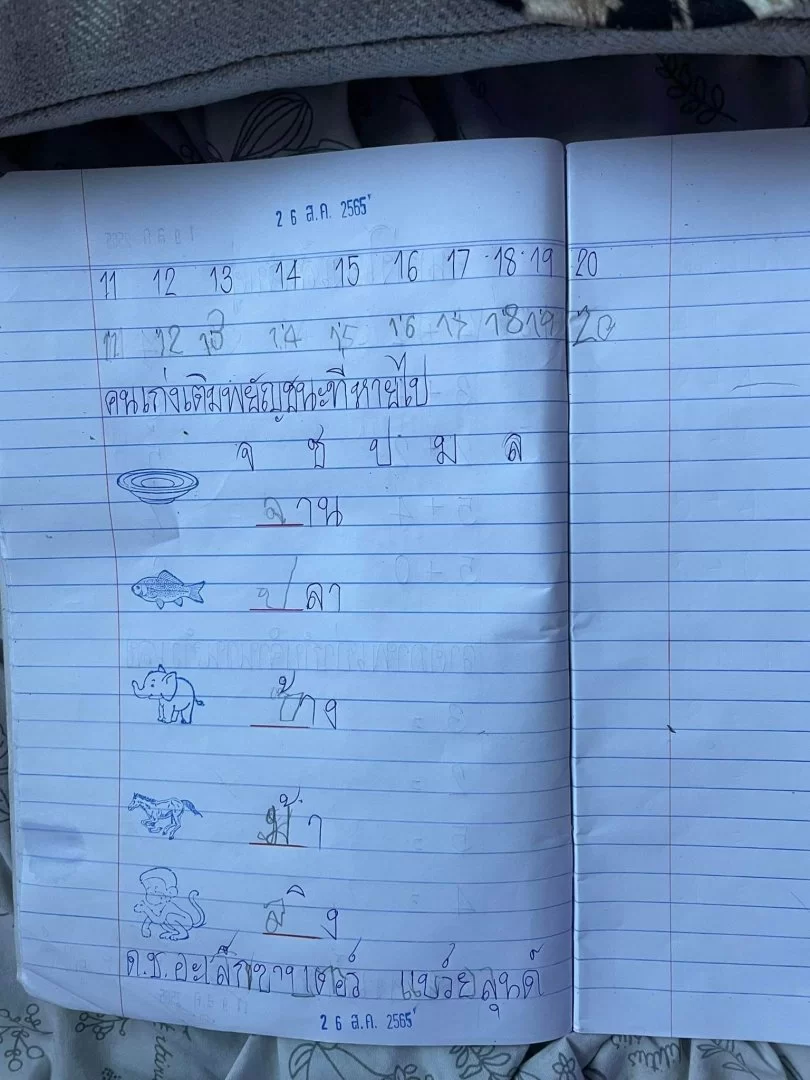 26 ส.ค. 2565
11 12 13 14 15 16 17 18 19 20
11 12 13 14 15 16 17 18 19 20
คนเก่งเติมพยัญชนะที่หายไป
จ ช ป ม ล
จาน
ปลา
ช้าง
ม้า
ลิง
ด.ช.อะเล็กซานเดอร์
26 ส.ค. 2565